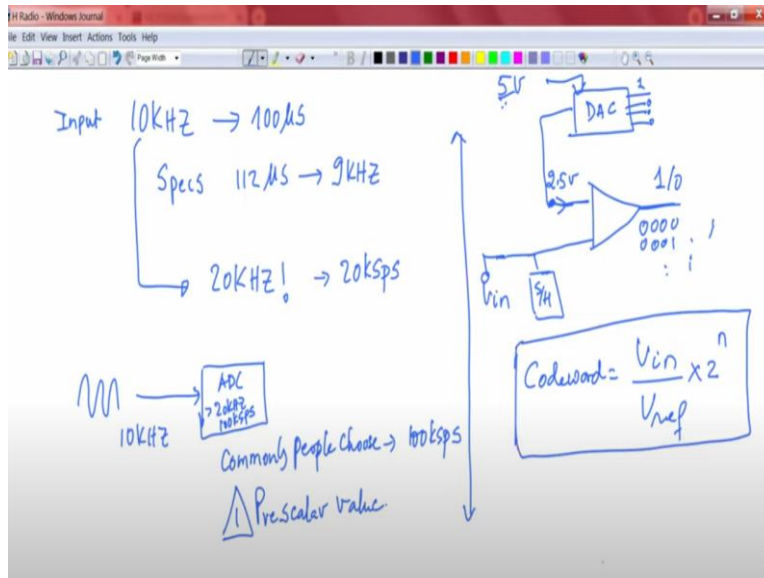 H Radio - Windows Journal
ile Edit View Insert Actions Tools Help
Page Width
B I
Input 10KHZ → 100μs
Specs 112 μs → 9KHZ
20KHZ! → 20ksps
10KHZ
ADC
>20kHz
100ksps
Commonly people choose → 100ksps
! Prescalar value
5V
DAC
1
0
0
0
2.5V
1/0
0000
0001
Vin
S/H
Codeword = Vin / Vref x 2^n